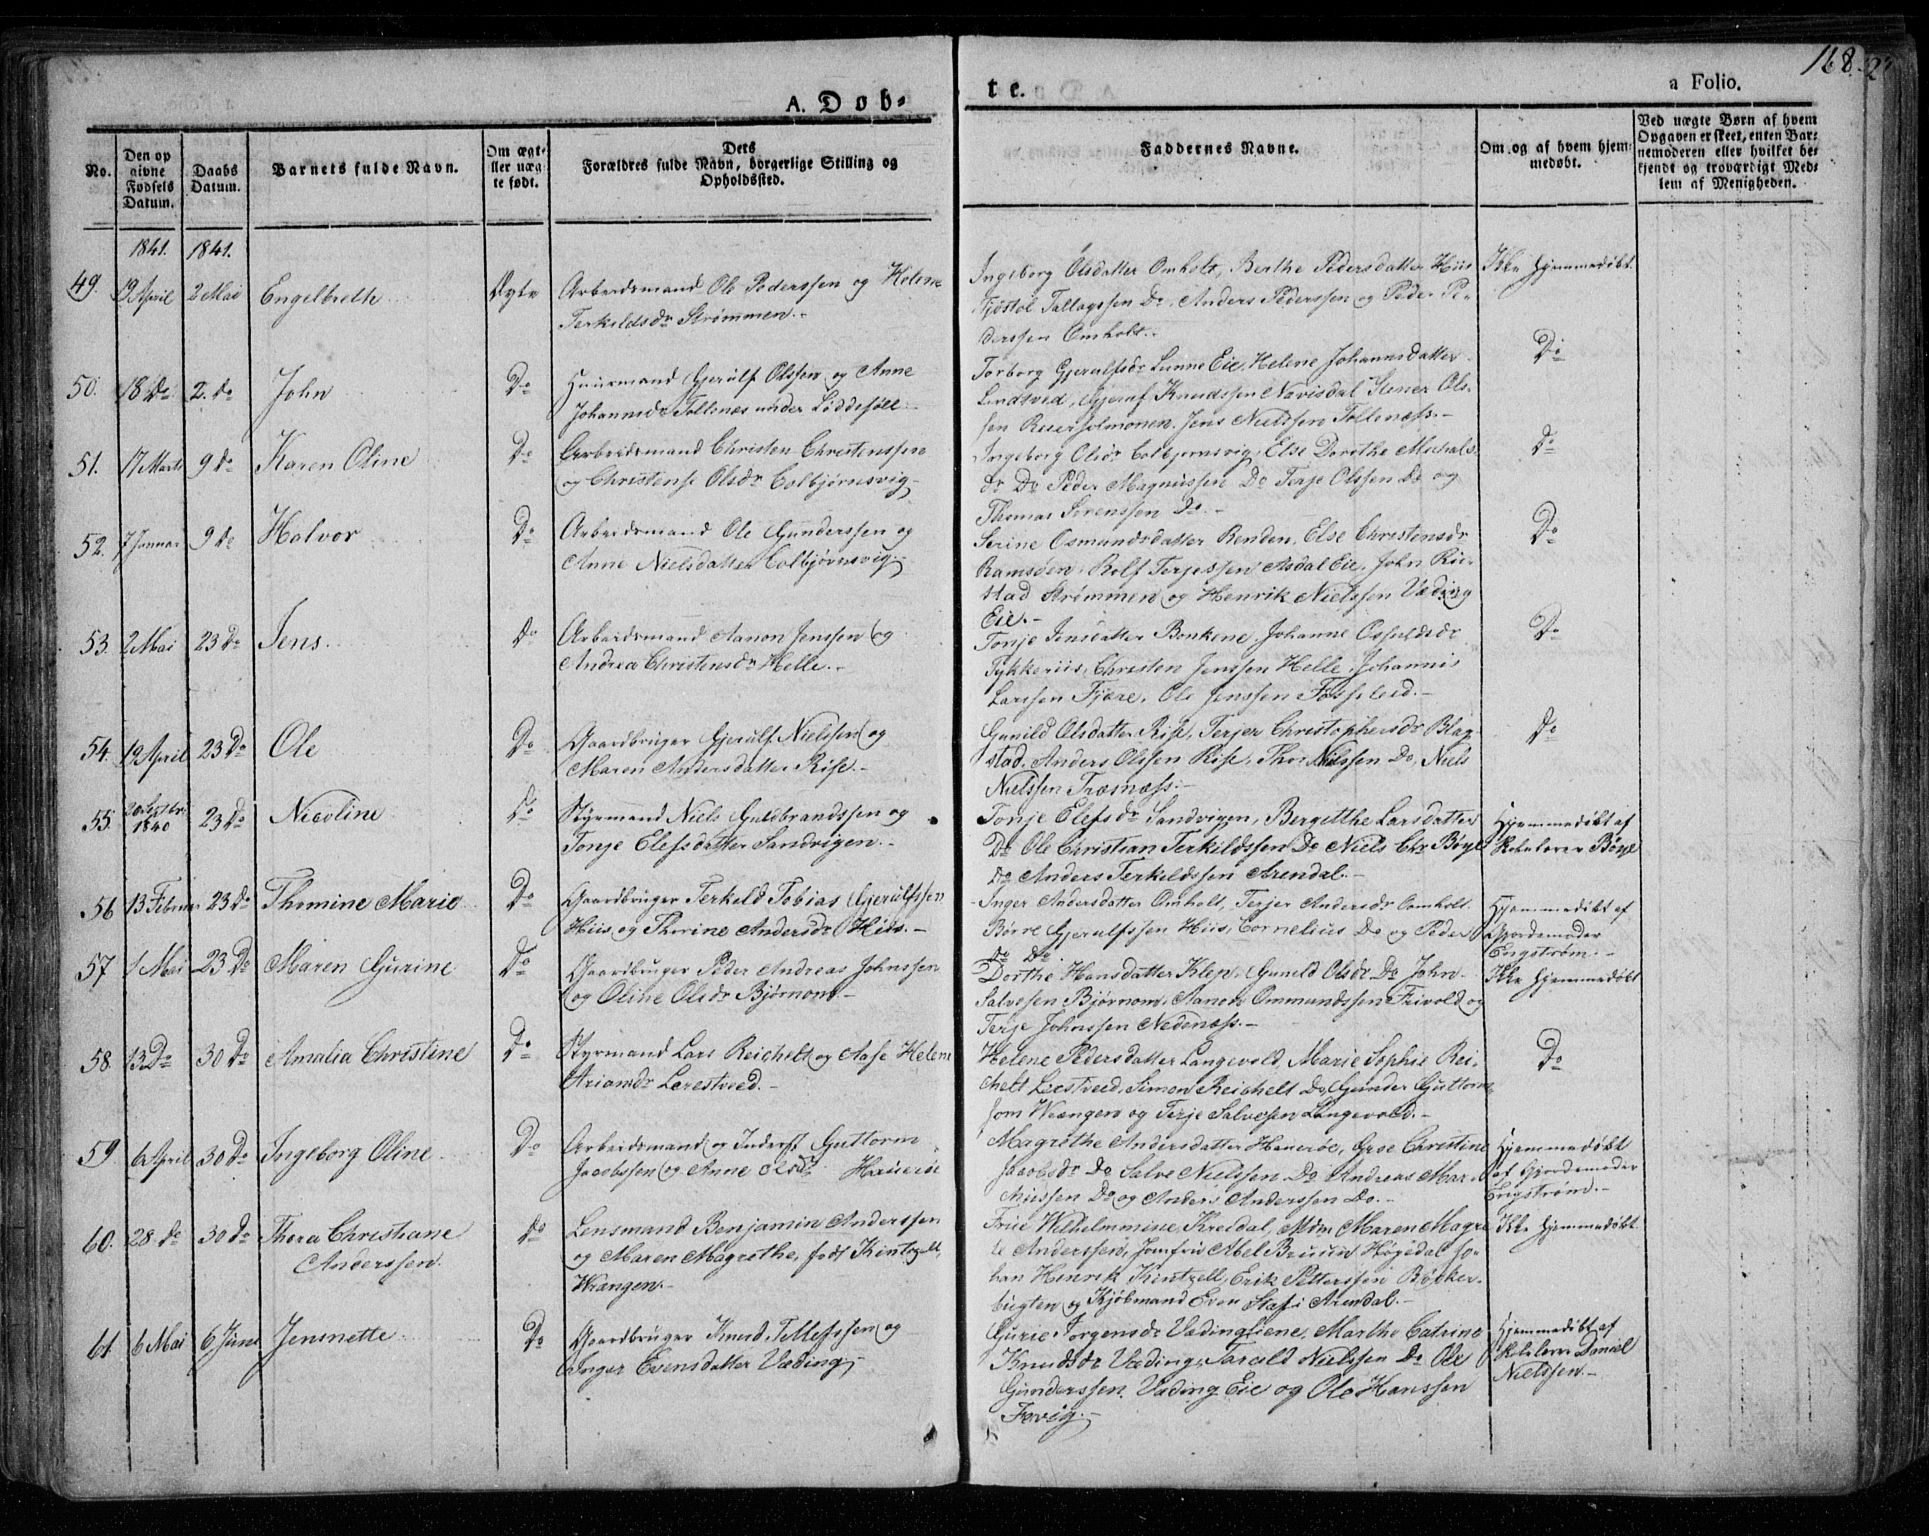 168.
A. Døb-
te.
a Folio.
No.
Den op
givne
Fødsels
Datum.
Daabs
Datum.
Barnets fulde Navn.
Om ægt-
ller uæg-
te født.
Dets
Forældres fulde Navn, borgerlige Stilling og
Opholdssted.
Faddernes Navne.
Om, og af hvem hjem-
medøbt.
Ved uægte Børn af hvem
Opgaven er skeet, enten Bar-
nemoderen eller hvilket be-
kjendt og troværdigt Med-
lem af Menigheden.
1841. 1841.
49. 19 April 2 Mai Engelbrethe Ægte Arbeidsmand Ole Pederssen og Helene
Terkildsdr Strømmen.-
Ingeborg Olsdatter Omholt, Berthe Pedersdatter Hiis
Fjøstol Tallagssen Do, Anders Pederssen og Peder Pe-
derssen Omholt.-
Ikke hjemmedøbt.
50. 18 do 2. do John Do Huusmand Gjerulf Olssen og Anne
Johannsdr Tollenes under Løddesøll.-
Torborg Gjerulfsdr Lunne Eie, Helene Johannsdatter
Lindtved, Gjeruf Knudssen Navisdal Stener Ols-
sen, Jens Nielssen Tollenæss.-
Do
51. 17 Marts 9 do Karen Oline Do Arbeidsmand Christen Christenssen
og Christense Olsdr Colbjørnsvig
Ingeborg Olsdr Colbjørnsvig, Else Dorothe Michals-
dr Do Peder Magnussen Do Terje Olssen Do og
Thomas Sørenssen Do.-
Do
52. 7 Januar 9 do Halvor Do Arbeidsmand Ole Gunderssen og
Anne Nielsdatter Colbjørnsvig
Serine Osmundsdatter Benden, Else Christensdr
Ramsøen, Rolf Terjessen Asdal Eie, John Rü-
stad Strømmen og Henrik Nielssen Væding
Eie.-
Do
53. 2 Mai 23 do Jens. Do Arbeidsmand Aanon Jenssen og
Andrea Christensdr Helle.-
Tonje Jensdatter Bonkene, Johanne Osfuldsdr
Tykkeriis, Christen Jenssen Helle, Johannis
Larssen Fjære, Ole Jenssen Fosseleid.-
Do
54. 19 April 23 do Ole Do Gaardbruger Gjerulf Nielssen og
Maren Andersdatter Rise.-
Gunild Olsdatter Rise, Terjer Christophersdr Blag-
stad, Anders Olssen Rise, Thor Nielssen Do, Niels
Nielssen Træsnæss.-
Do
55. 20 Septbr 1840 23 do Nicoline Do Styrmand Niels Guldbrandssen og
Tonje Elefsdatter Sandvigen.-
Tonje Elefsdr Sandvigen, Bergithe Larsdatter
Do Ole Christian Terkildssen Do Niels Chr Bøye
Do Anders Terkeldssen Arendal.-
Hjemmedøbt af
Skolelærer Bøye
56. 13 Februar 23 do Thomine Marie Do Gaardbruger Terkeld Tobias Gjerulfssen
Hiis og Thorine Andersdr Hiis.-
Inger Andersdatter Omholt, Terjer Andersdr Oomholt
Børre Gjerulfssen Hiis, Cornelius Do og Peder
Do Do.
Hjemmedøbt af
Gjordemoder
Engstrøm.-
57. 1 Mai 23 do Maren Gurine Do Gaardbruger Peder Andreas Johnssen
og Oline Olsdr Bjørnom-
Dorthe Hansdatter Klep, Gunild Olsdr Do John
Salvesen Bjørnom, Aanon Ommundssen Frivold og
Terje Johnssen Nedenæss.-
Ikke hjemmedøbt
58. 13 Do 30 Do Amalia Christine Do Styrmand Lars Reichelt og Aase Helene
Ariansdr Lerestveed.-
Helene Pedersdatter Langevold, Marie Sophie Rei-
chelt Leestveed, Simon Reichelt Do, Gunder Guttorm-
som Wrængen og Terje Salvesen Langevold.-
Do
59 6 April 30 Do Ingeborg Oline Do Arbeidsmand og Inderst Guttorm
Jacobssen og Anne Olsdr Haverøe
Magrethe Andersdatter Haverøe, Gyse Christine
Jacobsdr Do Salve Nielssen Do Andreas Mar-
Do og Anders Anderssen Do.-
Hjemmedøbt
af Gjordemoder
Engstrøm.-
60. 28 do 30 Do Thora Christiane
Anderssen.
Do Lensmand Benjamin Anderssen
og Maren Magrethe, født Kintzell,
Wrangen.-
Frue Wilhelmmine Kreidal, Mdm Maren Magre-
te Anderssen, Jomfru Abel Bruun Høgedal, Jo-
han Henrik Kintzell, Erik Petterssen Bøcker-
bugten og Kjøbmand Even Arendal.-
Ikke hjemmedøbt
61 6 Mai 6 Juni Jensnette Do Gaardbruger Knud Tellefssen og
Inger Evensdatter Væding.
Gurie Torgensdr Vædingsiene, Marthe Catrine
Knudsdr Væding, Tarald Nielssen Do Ole
Gunderssen, Væding Eie og Ole Hanssen
Færvig.-
Hjemmedøbt af
Skolelærer Daniel
Nielssen.-